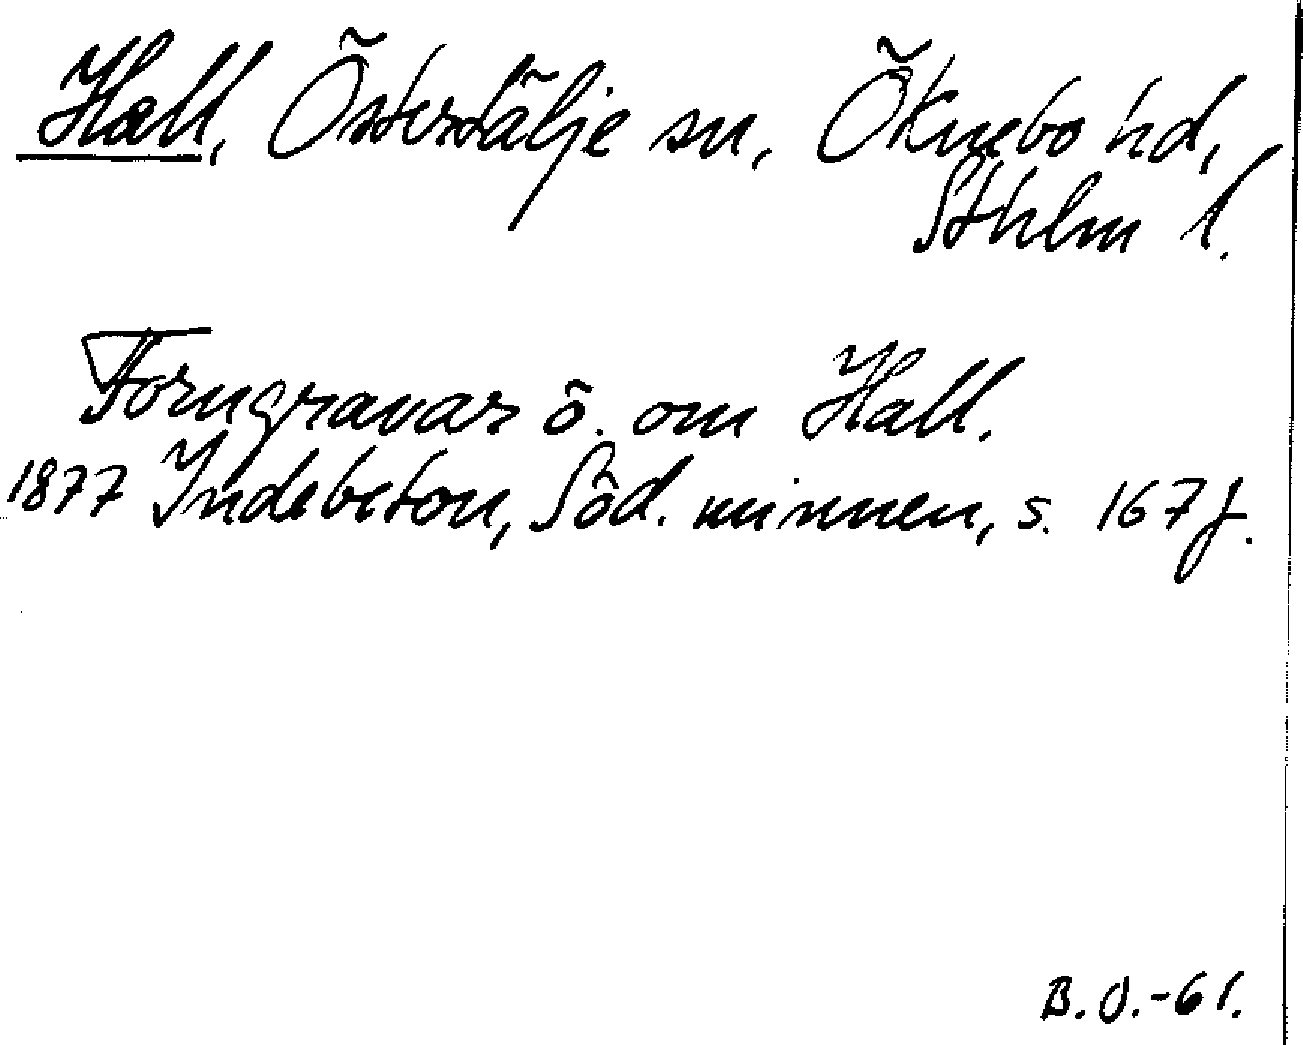 Hall, Östertälje sn, Öknebo hd,
Sthlm l.
Forngravar ö. om Hall.
1877 Indebetou, Söd. minnen, s. 167 f.
B.O.-61.